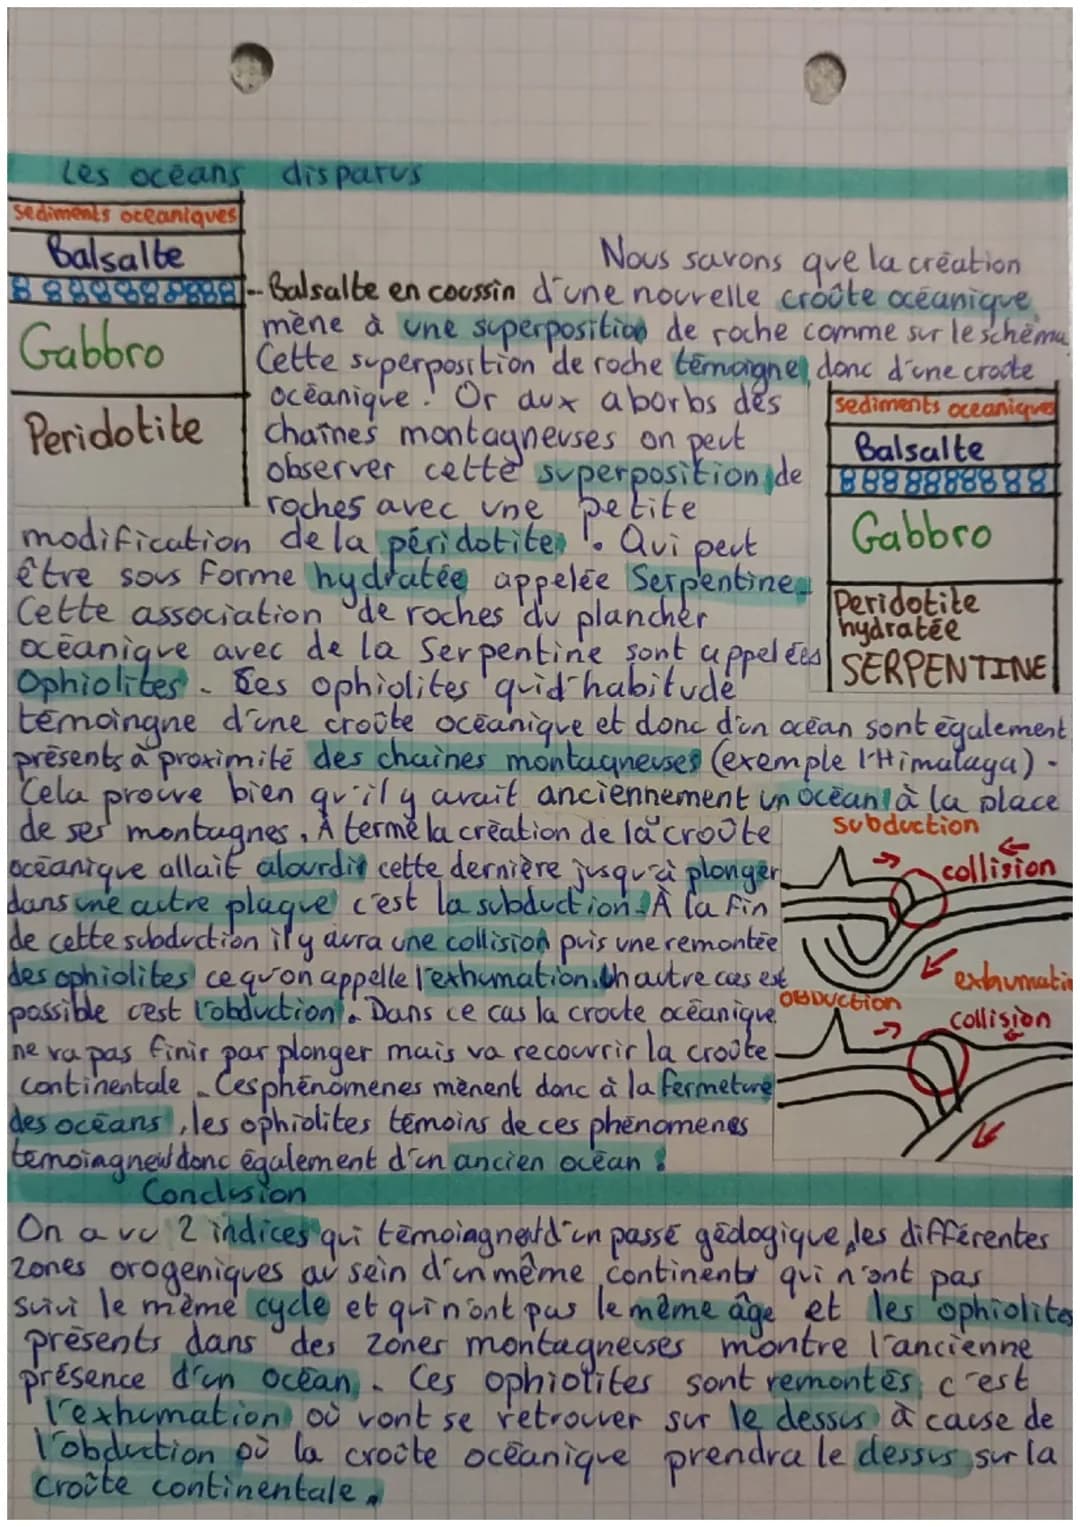 Les océans disparus
sediments oceaniques
Balsalte
Balsalte en coussin
Gabbro
Peridotite
Nous savons que la création
d'une nouvelle croûte océanique
mène à une superposition de roche comme sur le schéma
Cette superposition de roche témoigne donc d'une croûte
océanique. Or aux aborbs des
chaînes montagneuses on peut
observer cette superposition de
roches avec une petite
modification de la péridotite. Qui peut
être sous forme hydratée appelée Serpentine.
Cette association de roches du plancher
océanique avec de la Serpentine sont appelées
Ophiolites. Ces ophiolites qui d'habitude
témoingne d'une croûte océanique et donc d'un océan sont également
présents à proximité des chaines montagneuses (exemple l'Himalaya).
Cela prouve bien qu'il y avait anciennement un océan à la place
de ses montagnes. À terme la création de la croûte
océanique allait alourdir cette dernière jusqu'à plonger
dans une autre plaque c'est la subduction. À la fin
de cette subduction il y aura une collision puis une remontée
des ophiolites ce qu'on appelle l'exhumation. Un autre cas est
possible c'est l'obduction. Dans ce cas la croute océanique
ne va pas finir par plonger mais va recouvrir la croûte
continentale. Ces phénomènes mènent donc à la fermeture
des océans, les ophiolites témoins de ces phénomenes
temoiagnent donc également d'un ancien océan !
sediments oceaniques
Balsalte
Gabbro
Peridotite
hydratée
SERPENTINE
Subduction
collision
exhumatio
OBDUCTION
collision
Conclusion
On a vu 2 indices qui témoiagnent d'un passé géologique, les différentes
zones orogeniques au sein d'un même continent qui n'ont pas
suivi le même cycle et qui n'ont pas le même âge et les ophiolites
présents dans des zones montagneuses montre l'ancienne
présence d'un océan. Ces ophiolites sont remontés c'est
l'exhumation où vont se retrouver sur le dessus à cause de
l'obduction où la croûte océanique prendra le dessus sur la
croûte continentale.